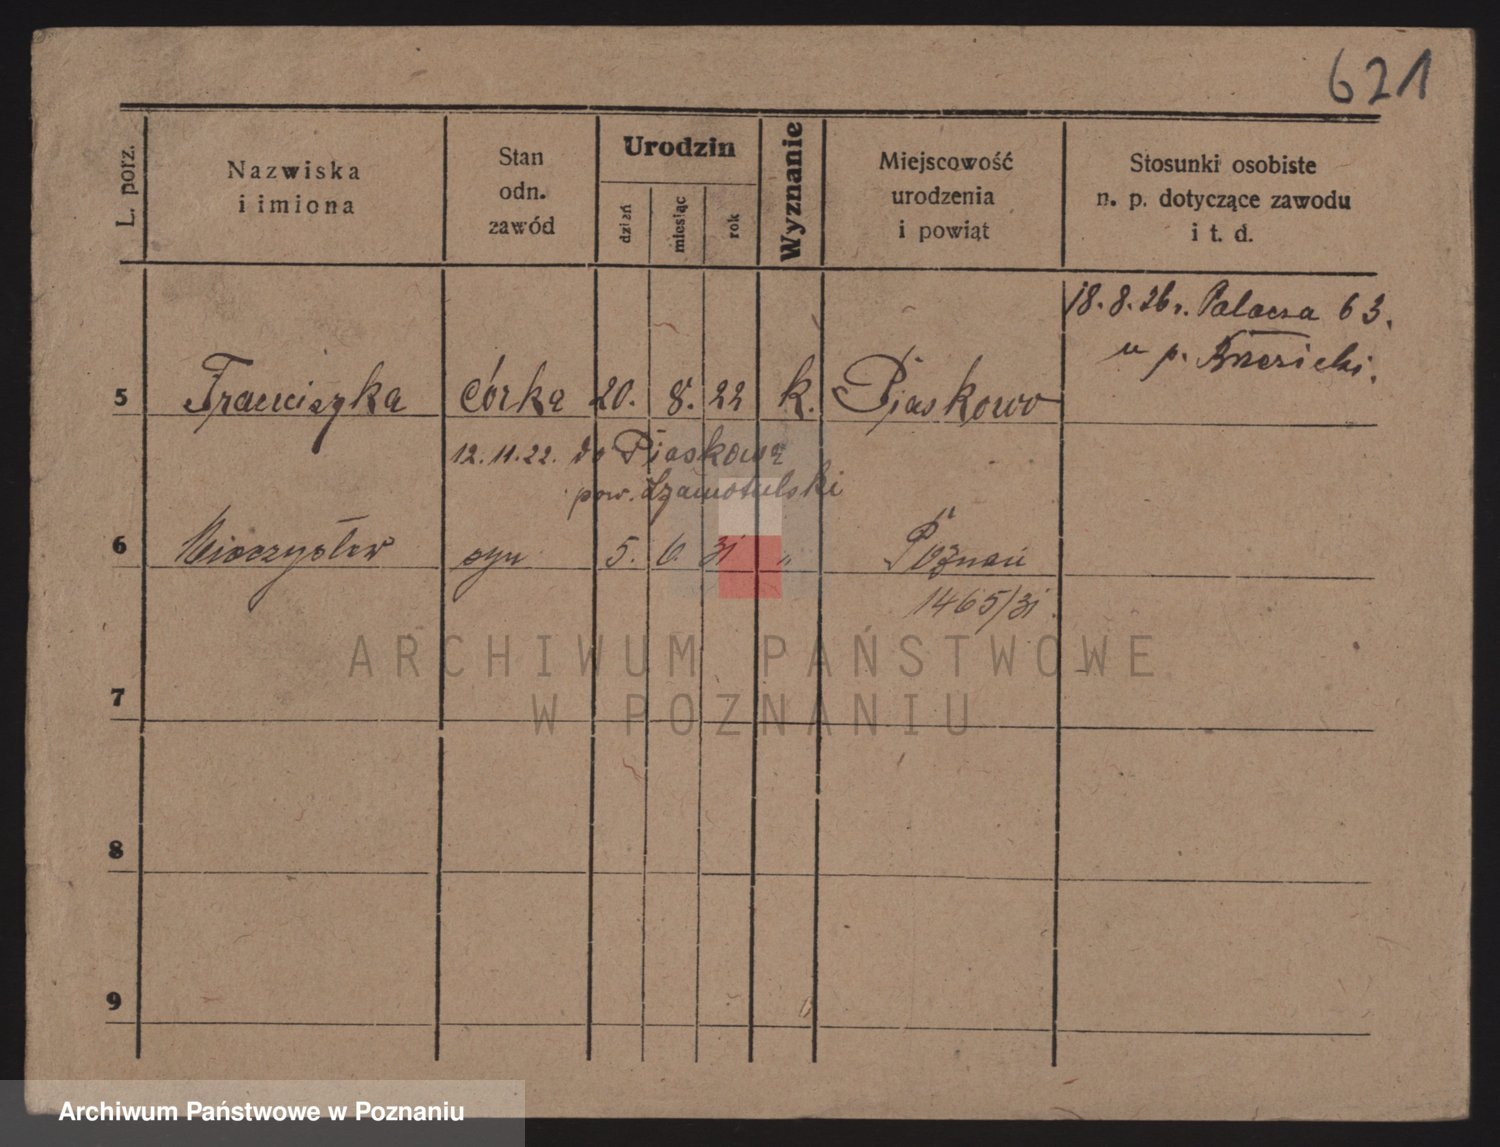 621
L. porz.
Nazwiska
i imiona
Stan
odn.
zawód
Urodzin
dzień
miesiąc
rok
Wyznanie
Miejscowość
urodzenia
i powiąt
Stosunki osobiste
n. p. dotyczące zawodu
i t. d.
18.8.26 r. Palacza 63.
u p.
5 Franciszka córka 20. 8. 22 k. Piaskowo
12.11.22. do Piaskowa
pow. Szamotulski
6 Mieczysław syn 5. 6. 31 " Poznań
1465/31.
ARCHIWUM PAŃSTWOWE
W POZNANIU
7
8
9
Archiwum Państwowe w Poznaniu